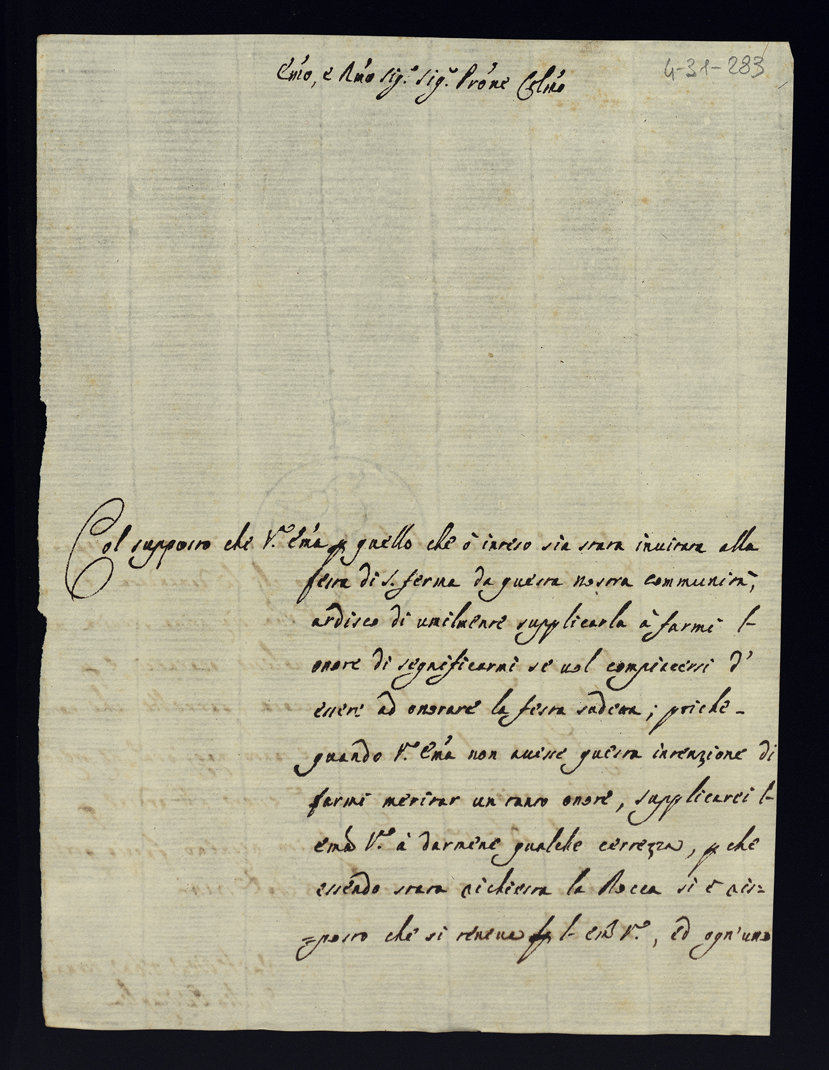 4-31-283
Em̃o, e Rm̃o Sig.r Sig.r Prõne Colm̃o
Col supposto che V.ra Em̃a p quello che ò inteso sia stata invitata alla
festa di S. ferma da questa nostra communità,
ardisco di umilmente supplicarla à farmi l-
onore di segnificarmi se vol compiacersi d'
essere ad onorare la festa sudetta; poiche-
quando V.ra Em̃a non avesse questa intenzione di
farmi meritar un tanto onore, supplicarei l-
Em̃a V.ra à darmene qualche certezza, p che
essendo stata richiesta la Rocca si è ris=
=posto che si teneva p l- Em̃a V.ra, ed ogn'uno